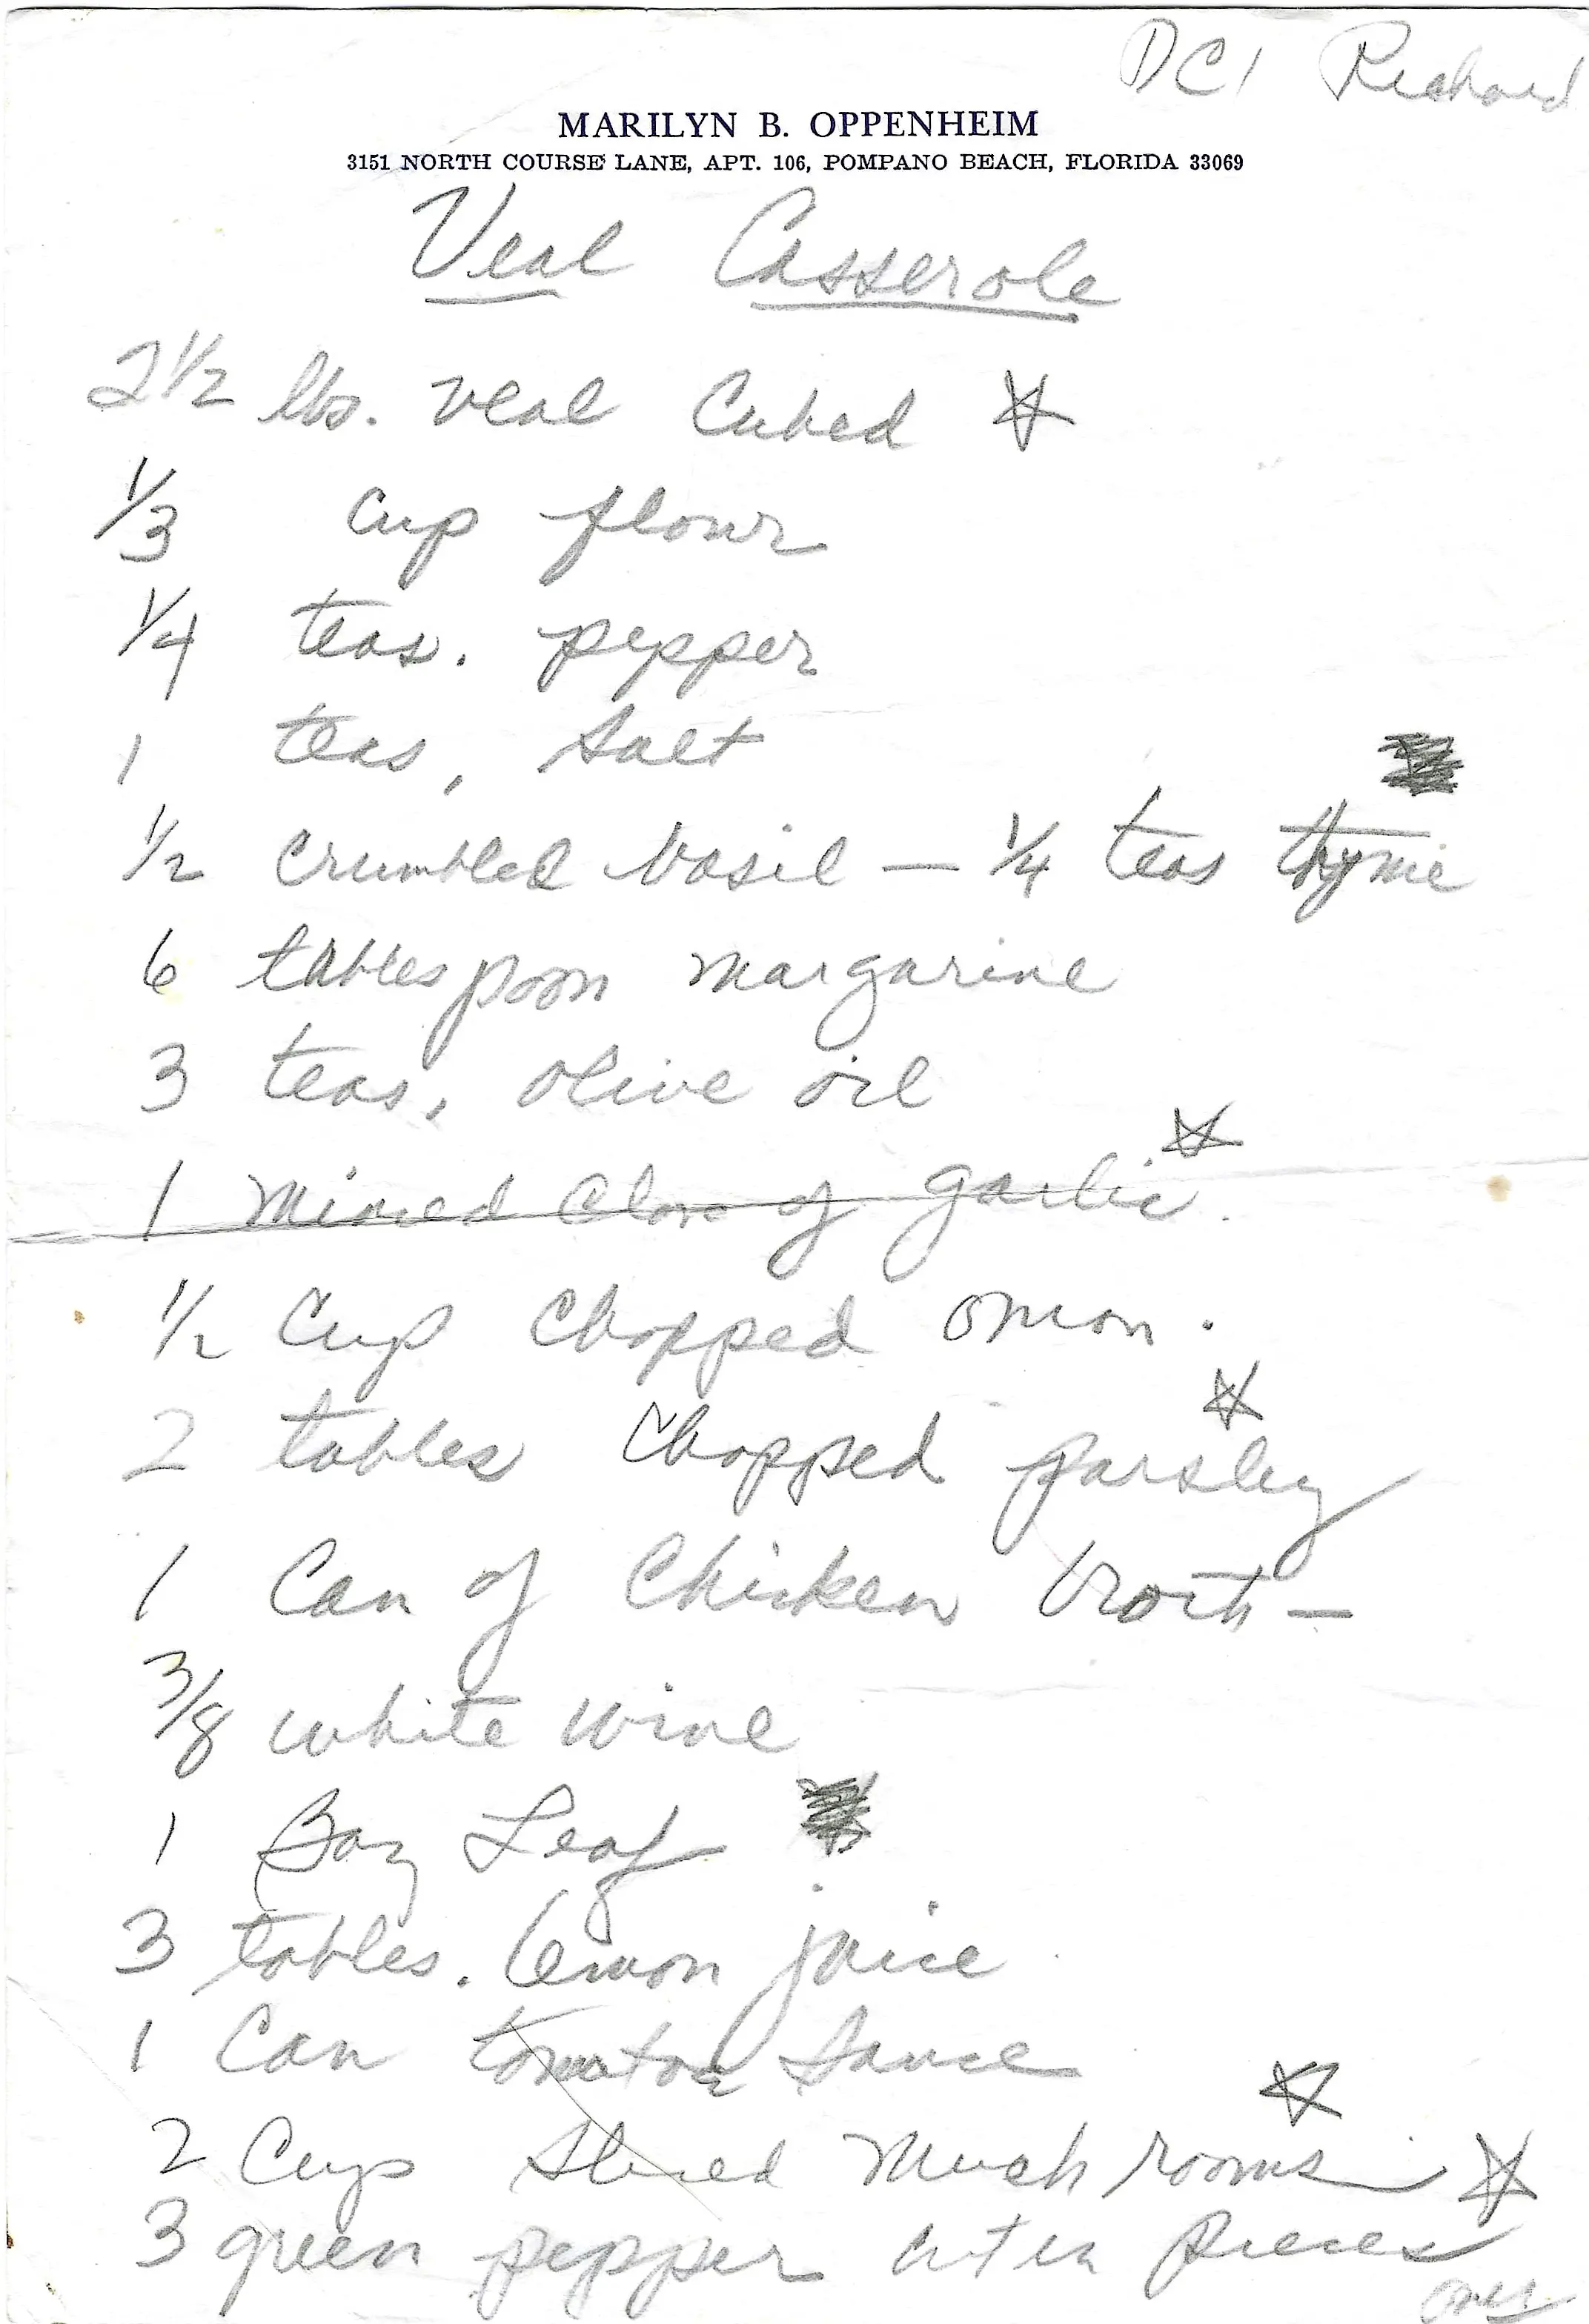 DC1 Richard
MARILYN B. OPPENHEIM
3151 NORTH COURSE LANE, APT. 106, POMPANO BEACH, FLORIDA 33069
Veal Casserole
2 1/2 lbs. veal Cubed
1/3 Cup flour
1/4 teas. pepper
1 teas, Salt
1/2 crumbled basil — 1/4 teas thyme
6 tablespoon margarine
3 teas, olive oil
1 Minced Clove of garlic.
1/2 Cup Chopped onion.
2 tables Chopped parsley
1 Can of Chicken broth —
3/8 white wine
1 Bay Leaf
3 tables. lemon juice
1 Can tomatoe Sauce
2 Cups Sliced Mushrooms
3 green pepper cut in pieces
over